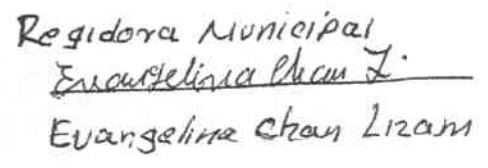 Regidora Municipal
Evangelina Chan L.
Evangelina Chan Lizam